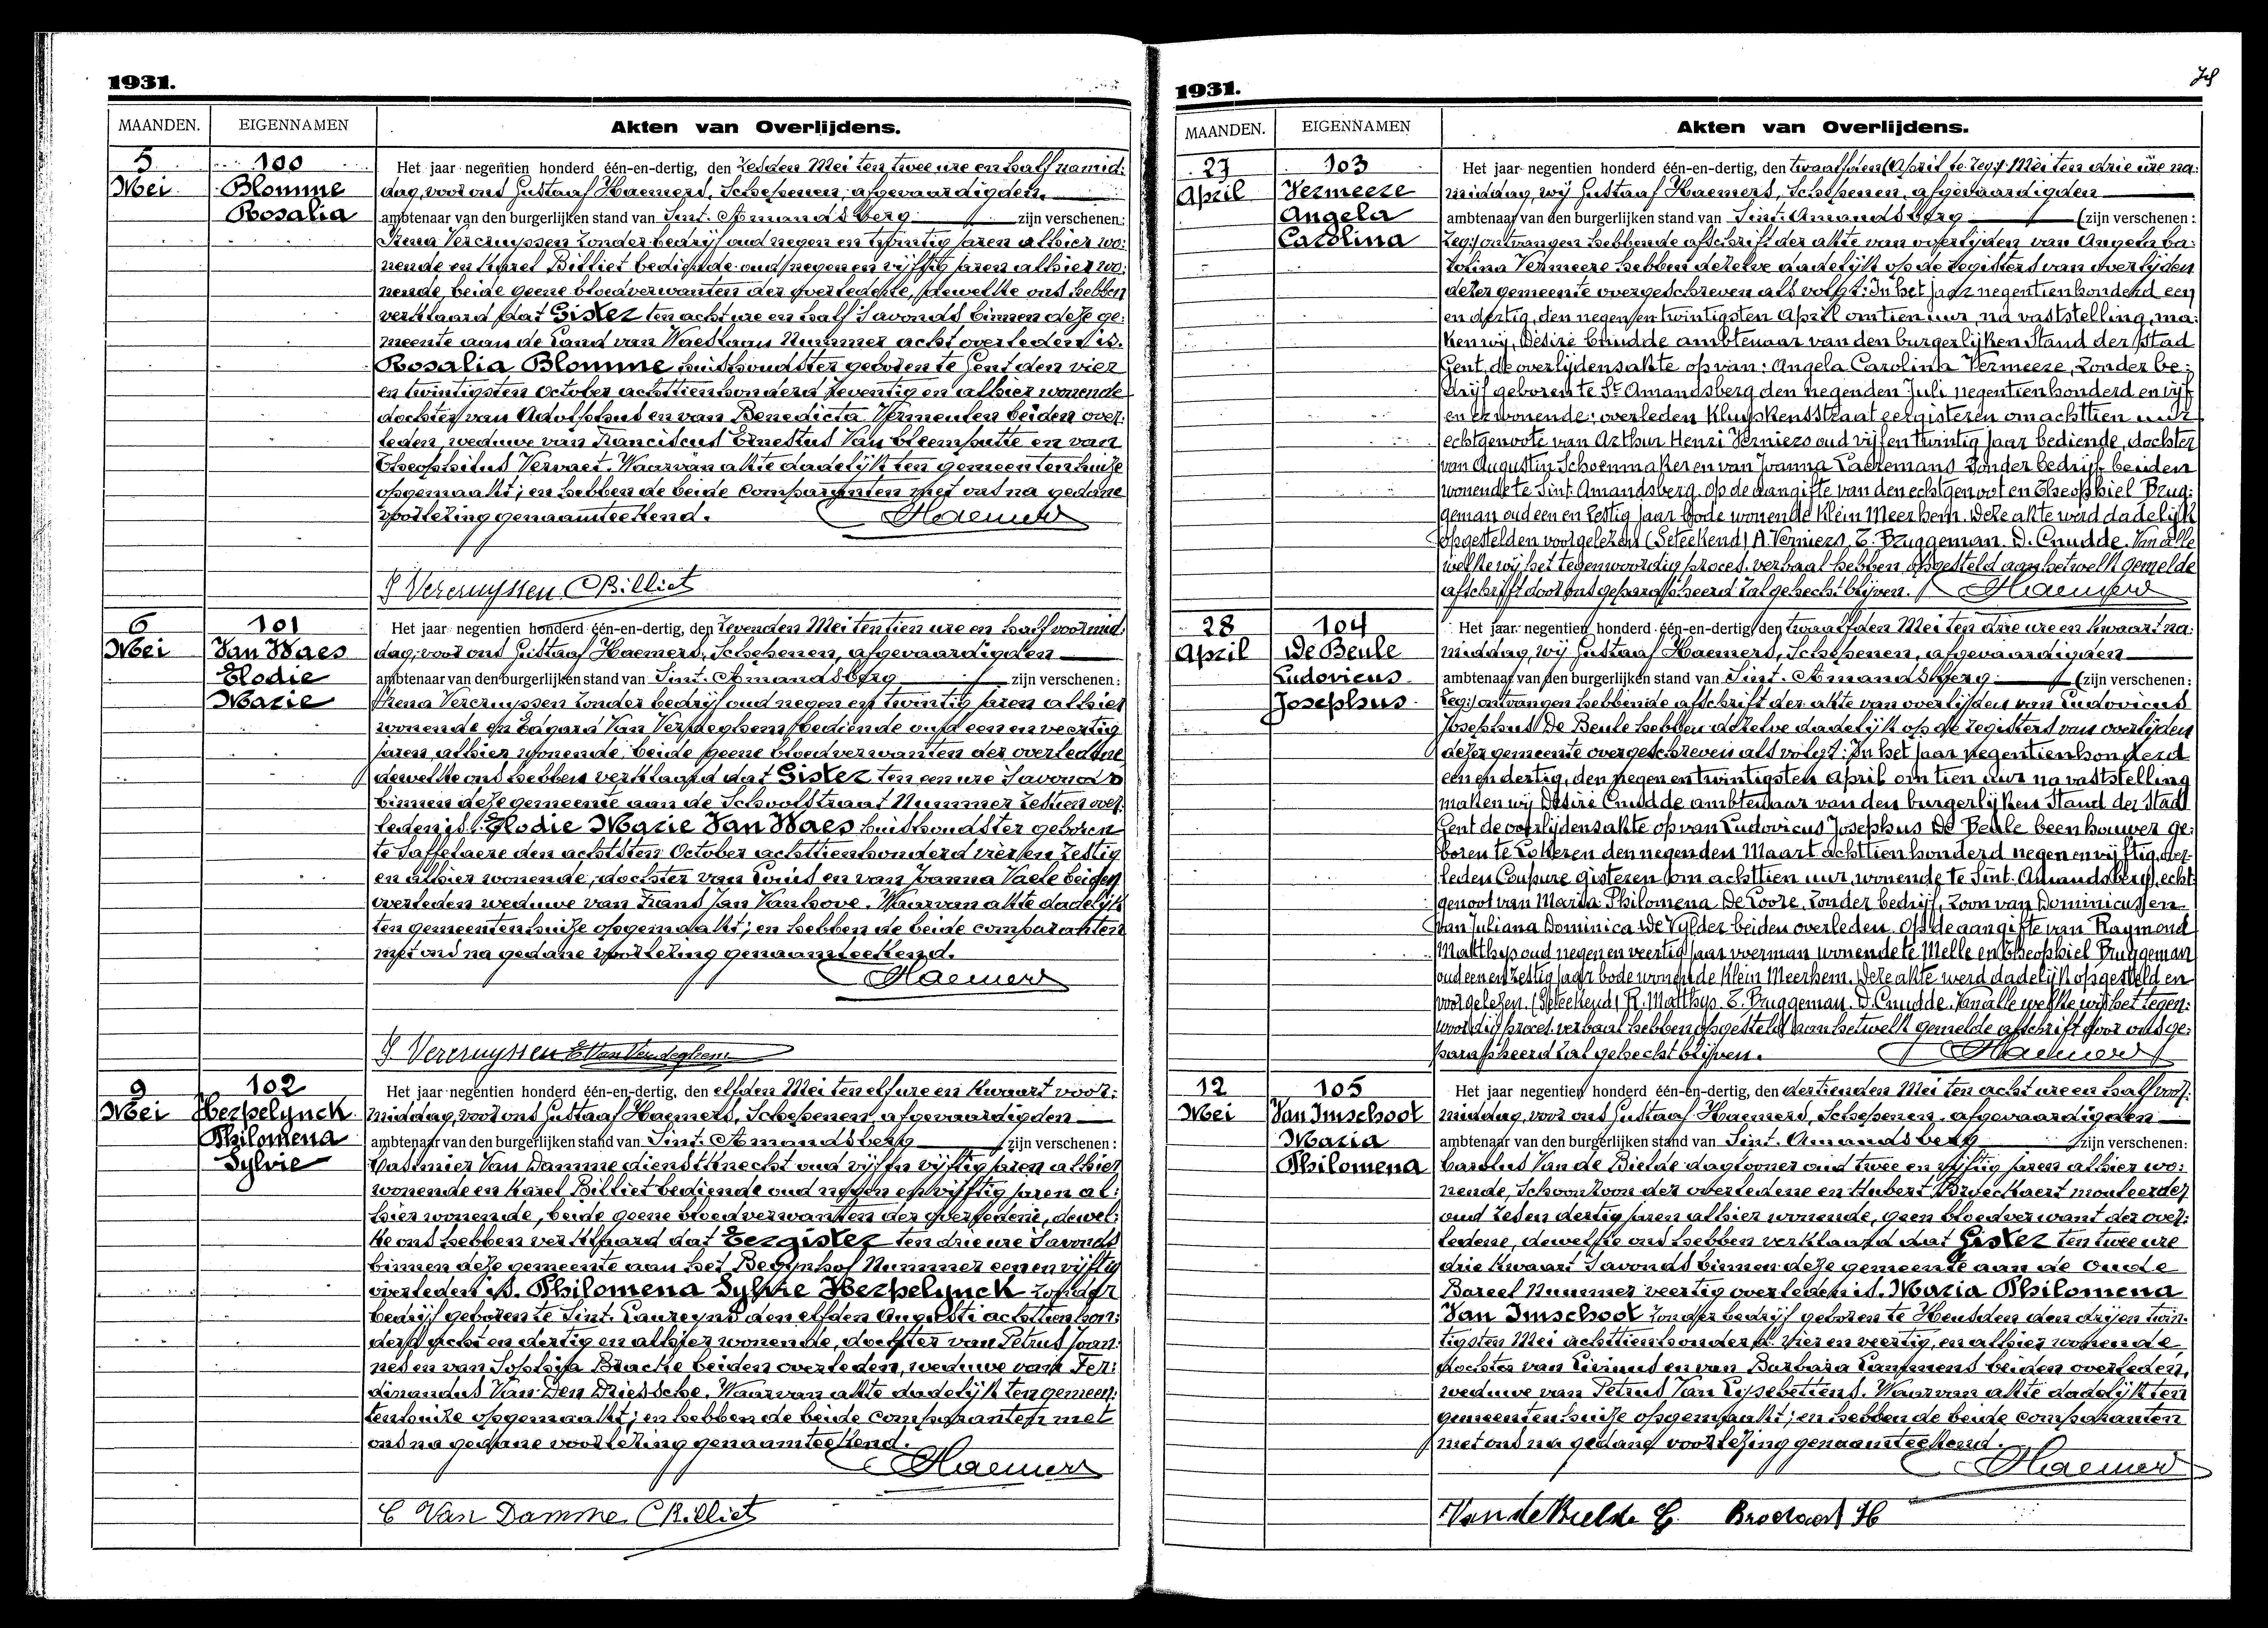 1931.
MAANDEN. EIGENNAMEN Akten van Overlijdens.
5 100 Het jaar negentien honderd één-en-dertig, den zesden Mei ten twee ure en half namid:
Mei Blomme dag, voor ons Gustaaf Haemers, Schepenen, afgevaardigden
Rosalia ambtenaar van den burgerlijken stand van Sint. Amandsberg zijn verschenen:
Irena Vercruyssen zonder bedrijf oud negen en twintig jaren alhier wo:
nende en Karel Billiet bediende oud negen en vijftig jaren alhier wo:
nende, beide geene bloedverwanten der overledene, dewelke ons hebben
verklaard dat Gister ten acht ure en half 's avonds binnen deze ge:
meente aan de Land van Waeslaan Nummer acht overleden is.
Rosalia Blomme huishoudster geboren te Gent den vier
en twintigsten October achttienhonderd zeventig en alhier wonende
dochter van Adolphus en van Benedicta Vermeulen beiden over:
leden, weduwe van Franciscus Ernestus Van Cleemputte en van
Theophilus Vervaet. Waarvan akte dadelijk ten gemeentenhuize
opgemaakt; en hebben de beide comparanten met ons na gedane
voorlezing genaamteekend. Haemers
I Vercruyssen C Billiet
6 101 Het jaar negentien honderd één-en-dertig, den zevenden Mei ten tien ure en half voormid:
Mei Van Waes dag, voor ons Gustaaf Haemers, Schepenen, afgevaardigden
Elodie ambtenaar van den burgerlijken stand van Sint. Amandsberg zijn verschenen:
Marie Irena Vercruyssen zonder bedrijf oud negen en twintig jaren alhier
wonende en Edgard Van Verdeghem bediende oud een en veertig
jaren, alhier wonende, beide geene bloedverwanten der overledene
dewelke ons hebben verklaard dat Gister ten een ure 's avonds
binnen deze gemeente aan de Schoolstraat Nummer zestien over:
leden is. Elodie Marie Van Waes huishoudster geboren
te Saffelaere den achtsten October achttienhonderd vier en zestig
en alhier wonende, dochter van Louis en van Joanna Vaele beiden
overleden weduwe van Frans Jan Vanhove. Waarvan akte dadelijk
ten gemeentenhuize opgemaakt; en hebben de beide comparanten
met ons na gedane voorlezing genaamteekend.
Haemers
I Vercruyssen E Van Verdeghem
9 102 Het jaar negentien honderd één-en-dertig, den elfden Mei ten elf ure en kwaart voor:
Mei Herpelynck middag, voor ons Gustaaf Haemers, Schepenen, afgevaardigden
Philomena ambtenaar van den burgerlijken stand van Sint. Amandsberg zijn verschenen:
Sylvie Casimier Van Damme dienstknecht oud vijf en vijftig jaren alhier
wonende en Karel Billiet bediende oud negen en vijftig jaren al:
hier wonende, beide geene bloedverwanten der overledene, dewel:
ke ons hebben verklaard dat Eergister ten drie ure 's avonds
binnen deze gemeente aan het Begijnhof Nummer een en vijftig
overleden is. Philomena Sylvie Herpelynck zonder
bedrijf geboren te Sint. Laureyns den elfden Augusti achttienhon:
derd acht en dertig en alhier wonende, dochter van Petrus Joan:
nes en van Sophia Bracke beiden overleden, weduwe van Fer:
dinandus Van Den Driessche. Waarvan akte dadelijk ten gemeen:
tenhuize opgemaakt; en hebben de beide comparanten met
ons na gedane voorlezing genaamteekend.
Haemers
C Van Damme C Billiet
1931.
MAANDEN. EIGENNAMEN Akten van Overlijdens.
27 103 Het jaar negentien honderd één-en-dertig, den twaalfden (April te zeg:) Mei ten drie ure na:
April Vermeere middag, wij Gustaaf Haemers, Schepenen, afgevaardigden
Angela ambtenaar van den burgerlijken stand van Sint. Amandsberg (zijn verschenen:
Carolina zeg:) ontvangen hebbende afschrift der akte van overlijden van Angela Ca:
rolina Vermeere hebben dezelve dadelijk op de registers van overlijden
dezer gemeente overgeschreven als volgt: In het jaar negentienhonderd een
en dertig, den negen en twintigsten April om tien uur, na vaststelling, ma:
ken wij, Désiré Cnudde ambtenaar van den burgerlijken Stand der stad
Gent, de overlijdensakte op van: Angela Carolina Vermeere, zonder be:
drijf geboren te St. Amandsberg den negenden Juli negentienhonderd en vijf
en er wonende; overleden Kluyskensstraat eergisteren om achttien uur
echtgenoote van Arthur Henri Verniers oud vijf en twintig jaar bediende, dochter
van Augustin Schoenmaker en van Joanna Laeremans zonder bedrijf beiden
wonende te Sint. Amandsberg. Op de aangifte van den echtgenoot en Theophiel Brug:
geman oud een en zestig jaar bode wonende Klein Meerhem. Deze akte werd dadelijk
opgesteld en voorgelezen. (Geteekend) A. Verniers, T. Bruggeman. D. Cnudde. Van alle
welke wij het tegenwoordig proces. verbaal hebben opgesteld aan hetwelk gemelde
afschrift door ons geparapheerd zal gehecht blijven. Haemers
28 104 Het jaar negentien honderd één-en-dertig, den twaalfden Mei ten drie ure en kwaart na:
April De Beule middag, wij Gustaaf Haemers, Schepenen, afgevaardigden
Ludovicus ambtenaar van den burgerlijken stand van Sint. Amandsberg (zijn verschenen:
Josephus zeg:) ontvangen hebbende afschrift der akte van overlijden van Ludovicus
Josephus De Beule hebben dezelve dadelijk op de registers van overlijden
dezer gemeente overgeschreven als volgt: In het jaar negentienhonderd
een en dertig, den negen en twintigsten April om tien uur na vaststelling
maken wij Désiré Cnudde ambtenaar van den burgerlijken Stand der Stad
Gent de overlijdensakte op van Ludovicus Josephus De Beule beenhouwer ge:
boren te Lokeren den negenden Maart achttienhonderd negen en vijftig, over:
leden Coupure gisteren om achttien uur, wonende te Sint. Amandsberg), echt:
genoot van Maria Philomena De Loore, zonder bedrijf, zoon van Dominicus en
van Juliana Dominica De Vylder beiden overleden. Op de aangifte van Raymond
Matthys oud negen en veertig jaar voerman wonende te Melle en Theophiel Bruggeman
oud een en zestig jaar bode wonende Klein Meerhem. Deze akte werd dadelijk opgesteld en
voorgelezen. (Geteekend) R. Matthys. T. Bruggeman. D. Cnudde. Van alle welke wij het tegen:
woordig proces. verbaal hebben opgesteld aan hetwelk gemelde afschrift door ons ge:
parapheerd zal gehecht blijven. Haemers
12 105 Het jaar negentien honderd één-en-dertig, den dertienden Mei ten acht ure en half voor:
Mei Van Imschoot middag, voor ons Gustaaf Haemers, Schepenen, afgevaardigden
Maria ambtenaar van den burgerlijken stand van Sint. Amandsberg zijn verschenen:
Philomena Carolus Van de Bielde daglooner oud twee en vijftig jaren alhier wo:
nende, Schoonzoon der overledene en Hubert Broeckaert mouleerder
oud zes en dertig jaren alhier wonende, geen bloedverwant der over:
ledene, dewelke ons hebben verklaard dat Gister ten twee ure
drie kwaart 's avonds binnen deze gemeente aan de Oude
Bareel Nummer veertig overleden is. Maria Philomena
Van Imschoot zonder bedrijf geboren te Heusden den drij en twin:
tigsten Mei achttienhonderd vier en veertig, en alhier wonende
dochter van Livinus en van Barbara Lammens beiden overleden,
weduwe van Petrus Van Lysebettens. Waarvan akte dadelijk ten
gemeentenhuize opgemaakt; en hebben de beide comparanten
met ons na gedane voorlezing genaamteekend.
Haemers
Van de Bielde C. Broeckaert H